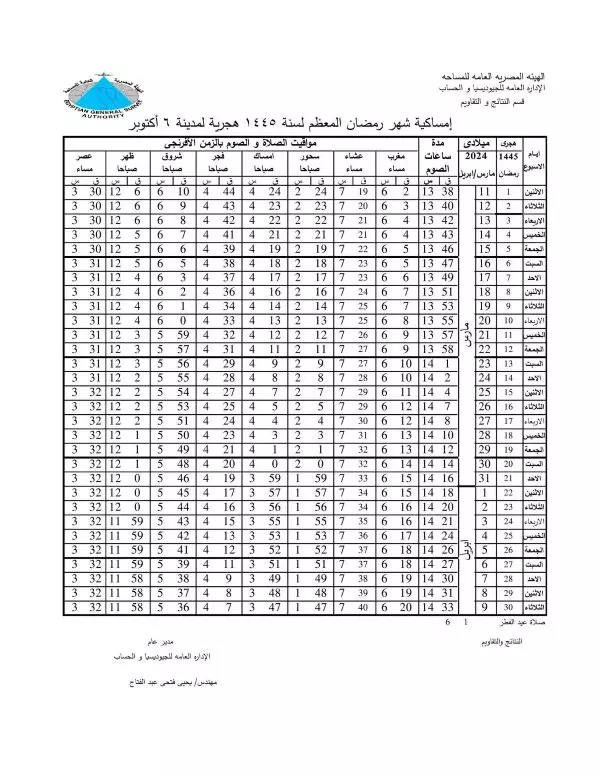 الهيئه المصريه العامه للمساحه
الإداره العامه للجيوديسيا و الحساب
قسم النتائج و التقاويم
الهيئة المصرية العامة للمساحة
EGYPTIAN GENERAL SURVEY
AUTHORITY
إمساكية شهر رمضان المعظم لسنة ١٤٤٥ هجرية لمدينة ٦ أكتوبر
ايام الاسبوع هجرى ميلادى مدة ساعات الصوم مواقيت الصلاة و الصوم بالزمن الأفرنجى
1445 2024 مغرب عشاء سحور امساك فجر شروق ظهر عصر
رمضان مارس/ابريل مساء مساء صباحا صباحا صباحا صباحا صباحا مساء
ق س ق س ق س ق س ق س ق س ق س ق س ق س
مارس
الاثنين 1 11 38 13 2 6 19 7 24 2 24 4 44 4 10 6 6 12 30 3
الثلاثاء 2 12 40 13 3 6 20 7 23 2 23 4 43 4 9 6 6 12 30 3
الاربعاء 3 13 42 13 4 6 21 7 22 2 22 4 42 4 8 6 6 12 30 3
الخميس 4 14 43 13 4 6 21 7 21 2 21 4 41 4 7 6 5 12 30 3
الجمعة 5 15 46 13 5 6 22 7 19 2 19 4 39 4 6 6 5 12 30 3
السبت 6 16 47 13 5 6 23 7 18 2 18 4 38 4 5 6 5 12 31 3
الاحد 7 17 49 13 6 6 23 7 17 2 17 4 37 4 3 6 4 12 31 3
الاثنين 8 18 51 13 7 6 24 7 16 2 16 4 36 4 2 6 4 12 31 3
الثلاثاء 9 19 53 13 7 6 25 7 14 2 14 4 34 4 1 6 4 12 31 3
الاربعاء 10 20 55 13 8 6 25 7 13 2 13 4 33 4 0 6 4 12 31 3
الخميس 11 21 57 13 9 6 26 7 12 2 12 4 32 4 59 5 3 12 31 3
الجمعة 12 22 58 13 9 6 27 7 11 2 11 4 31 4 57 5 3 12 31 3
السبت 13 23 1 14 10 6 27 7 9 2 9 4 29 4 56 5 3 12 31 3
الاحد 14 24 2 14 10 6 28 7 8 2 8 4 28 4 55 5 2 12 31 3
الاثنين 15 25 4 14 11 6 29 7 7 2 7 4 27 4 54 5 2 12 32 3
الثلاثاء 16 26 7 14 12 6 29 7 5 2 5 4 25 4 53 5 2 12 32 3
الاربعاء 17 27 8 14 12 6 30 7 4 2 4 4 24 4 51 5 2 12 32 3
الخميس 18 28 10 14 13 6 31 7 3 2 3 4 23 4 50 5 1 12 32 3
الجمعة 19 29 12 14 13 6 32 7 1 2 1 4 21 4 49 5 1 12 32 3
السبت 20 30 14 14 14 6 32 7 0 2 0 4 20 4 48 5 1 12 32 3
الاحد 21 31 16 14 15 6 33 7 59 1 59 3 19 4 46 5 0 12 32 3
ابريل
الاثنين 22 1 18 14 15 6 34 7 57 1 57 3 17 4 45 5 0 12 32 3
الثلاثاء 23 2 20 14 16 6 34 7 56 1 56 3 16 4 44 5 0 12 32 3
الاربعاء 24 3 21 14 16 6 35 7 55 1 55 3 15 4 43 5 59 11 32 3
الخميس 25 4 24 14 17 6 36 7 53 1 53 3 13 4 42 5 59 11 32 3
الجمعة 26 5 26 14 18 6 37 7 52 1 52 3 12 4 41 5 59 11 32 3
السبت 27 6 27 14 18 6 37 7 51 1 51 3 11 4 39 5 59 11 32 3
الاحد 28 7 30 14 19 6 38 7 49 1 49 3 9 4 38 5 58 11 32 3
الاثنين 29 8 31 14 19 6 39 7 48 1 48 3 8 4 37 5 58 11 32 3
الثلاثاء 30 9 33 14 20 6 40 7 47 1 47 3 7 4 36 5 58 11 32 3
صلاة عيد الفطر 1 6
النتائج والتقاويم
مدير عام
الإداره العامه للجيوديسيا و الحساب
مهندس/ يحيى فتحى عبد الفتاح